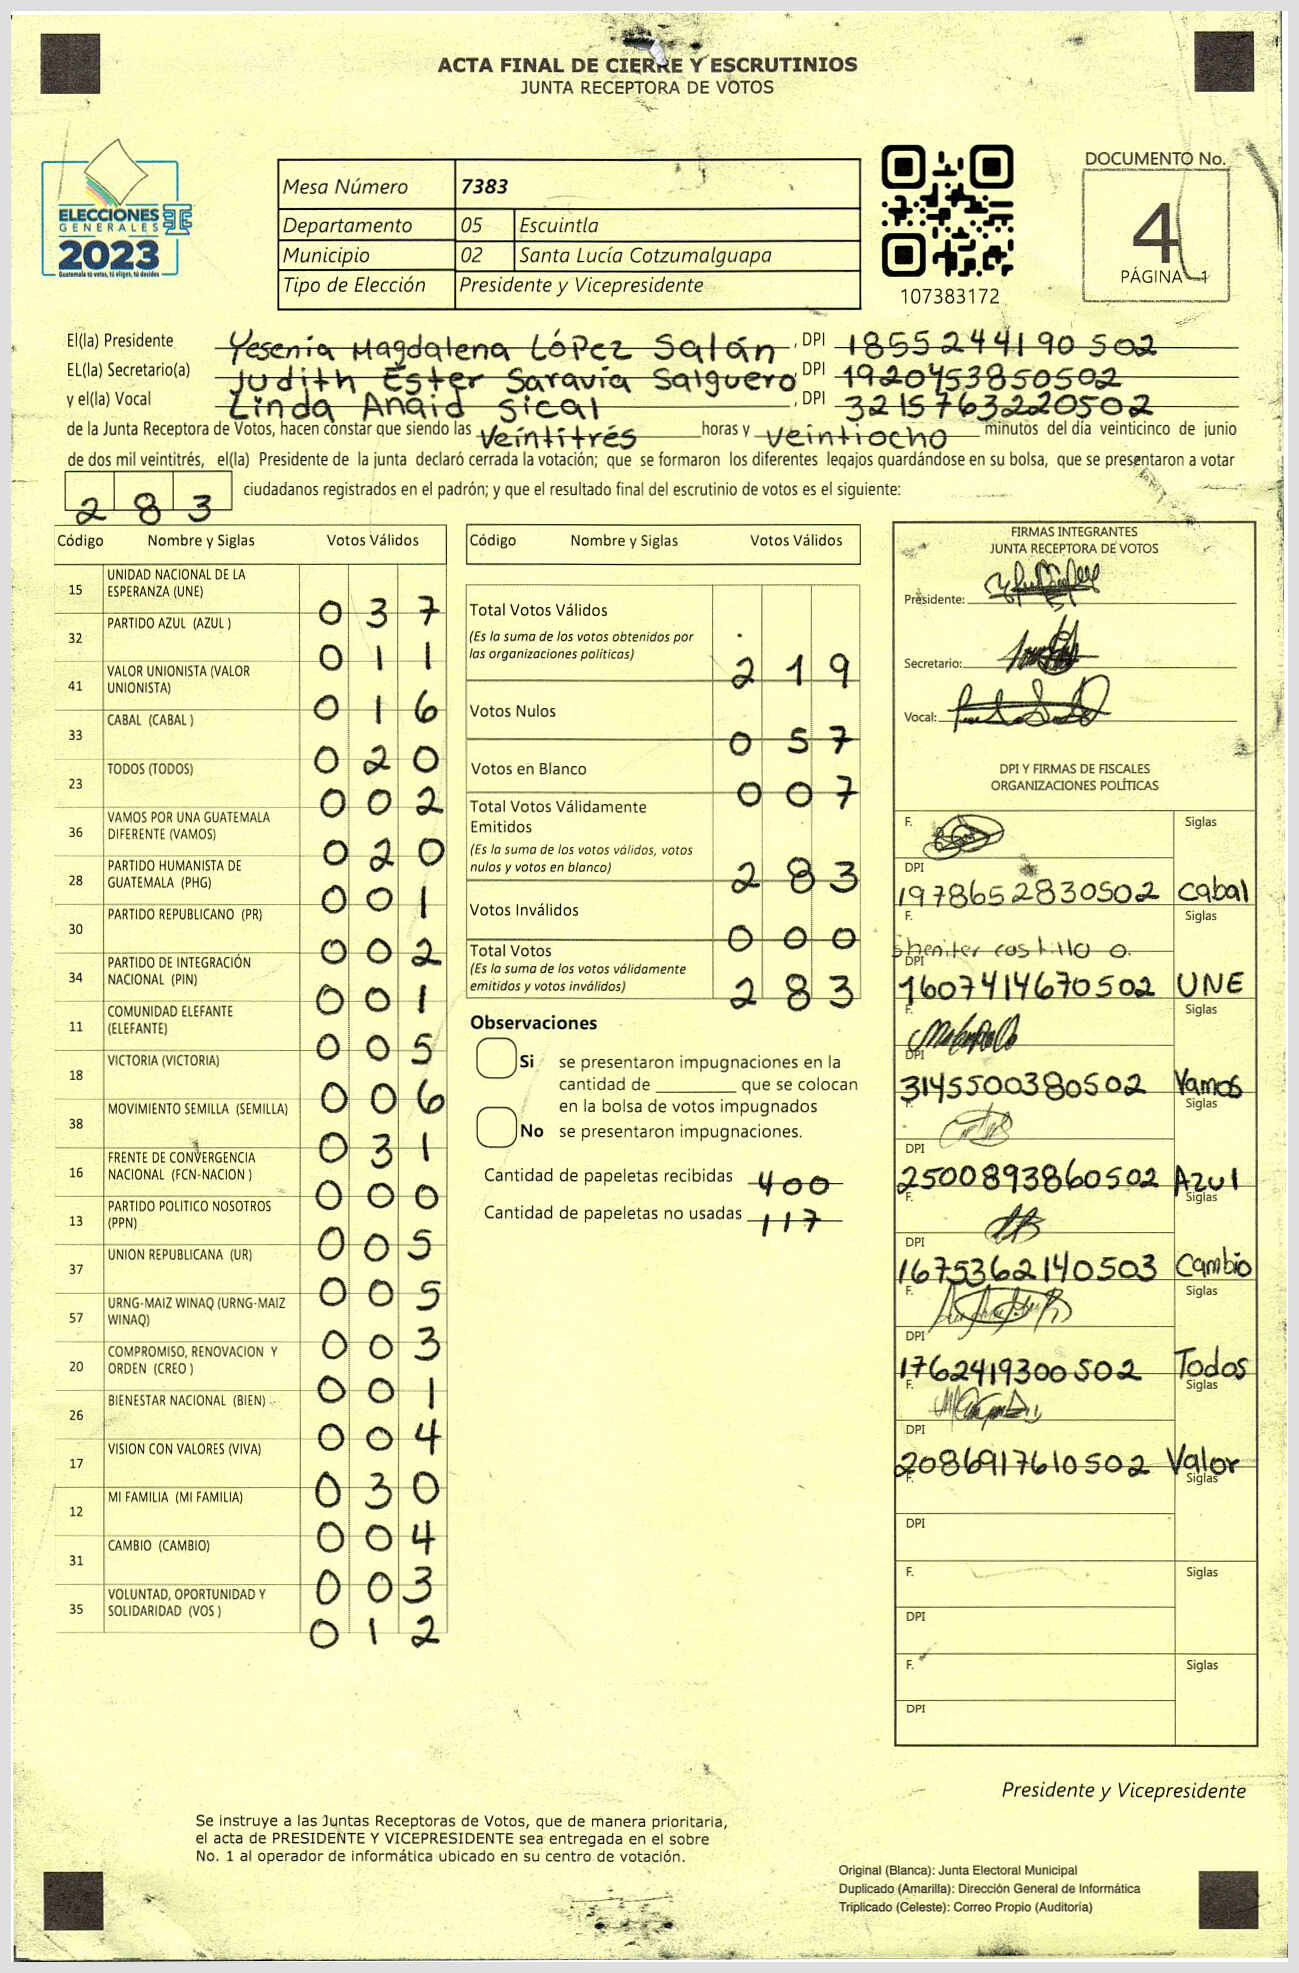 ACTA FINAL DE CIERRE Y ESCRUTINIOS
JUNTA RECEPTORA DE VOTOS
ELECCIONES
GENERALES
2023
Guatemala tú votas, tú eliges, tú decides
Mesa Número 7383
Departamento 05 Escuintla
Municipio 02 Santa Lucía Cotzumalguapa
Tipo de Elección Presidente y Vicepresidente
107383172
DOCUMENTO No.
4
PÁGINA 1
El(la) Presidente Yesenia Magdalena López Salán, DPI 1855244190502
EL(la) Secretario(a) Judith Ester Saravia Salguero, DPI 1920453850502
y el(la) Vocal Linda Anaid Sical, DPI 3215763220502
de la Junta Receptora de Votos, hacen constar que siendo las veintitrés horas y veintiocho minutos del día veinticinco de junio
de dos mil veintitrés, el(la) Presidente de la junta declaró cerrada la votación; que se formaron los diferentes legajos guardándose en su bolsa, que se presentaron a votar
283 ciudadanos registrados en el padrón; y que el resultado final del escrutinio de votos es el siguiente:
Código Nombre y Siglas Votos Válidos
15 UNIDAD NACIONAL DE LA ESPERANZA (UNE) 037
32 PARTIDO AZUL (AZUL ) 011
41 VALOR UNIONISTA (VALOR UNIONISTA) 016
33 CABAL (CABAL ) 020
23 TODOS (TODOS) 002
36 VAMOS POR UNA GUATEMALA DIFERENTE (VAMOS) 020
28 PARTIDO HUMANISTA DE GUATEMALA (PHG) 001
30 PARTIDO REPUBLICANO (PR) 002
34 PARTIDO DE INTEGRACIÓN NACIONAL (PIN) 001
11 COMUNIDAD ELEFANTE (ELEFANTE) 005
18 VICTORIA (VICTORIA) 006
38 MOVIMIENTO SEMILLA (SEMILLA) 031
16 FRENTE DE CONVERGENCIA NACIONAL (FCN-NACION ) 000
13 PARTIDO POLITICO NOSOTROS (PPN) 005
37 UNION REPUBLICANA (UR) 005
57 URNG-MAIZ WINAQ (URNG-MAIZ WINAQ) 003
20 COMPROMISO, RENOVACION Y ORDEN (CREO ) 001
26 BIENESTAR NACIONAL (BIEN) 004
17 VISION CON VALORES (VIVA) 030
12 MI FAMILIA (MI FAMILIA) 004
31 CAMBIO (CAMBIO) 003
35 VOLUNTAD, OPORTUNIDAD Y SOLIDARIDAD (VOS ) 012
Código Nombre y Siglas Votos Válidos
Total Votos Válidos
(Es la suma de los votos obtenidos por
las organizaciones políticas) 219
Votos Nulos 057
Votos en Blanco 007
Total Votos Válidamente
Emitidos
(Es la suma de los votos válidos, votos
nulos y votos en blanco) 283
Votos Inválidos 000
Total Votos
(Es la suma de los votos válidamente
emitidos y votos inválidos) 283
Observaciones
Si se presentaron impugnaciones en la
cantidad de ________ que se colocan
en la bolsa de votos impugnados
No se presentaron impugnaciones.
Cantidad de papeletas recibidas 400
Cantidad de papeletas no usadas 117
FIRMAS INTEGRANTES
JUNTA RECEPTORA DE VOTOS
Presidente:
Secretario:
Vocal:
DPI Y FIRMAS DE FISCALES
ORGANIZACIONES POLÍTICAS
F. Siglas
DPI
1978652830502 Cabal
F. Siglas
castillo o.
DPI
1607414670502 UNE
F. Siglas
DPI
3145500380502 Vamos
F. Siglas
DPI
2500893860502 Azul
F. Siglas
DPI
1675362140503 Cambio
F. Siglas
DPI
1762419300502 Todos
F. Siglas
DPI
2086917610502 Valor
F. Siglas
DPI
F. Siglas
DPI
F. Siglas
DPI
Presidente y Vicepresidente
Se instruye a las Juntas Receptoras de Votos, que de manera prioritaria,
el acta de PRESIDENTE Y VICEPRESIDENTE sea entregada en el sobre
No. 1 al operador de informática ubicado en su centro de votación.
Original (Blanca): Junta Electoral Municipal
Duplicado (Amarilla): Dirección General de Informática
Triplicado (Celeste): Correo Propio (Auditoría)